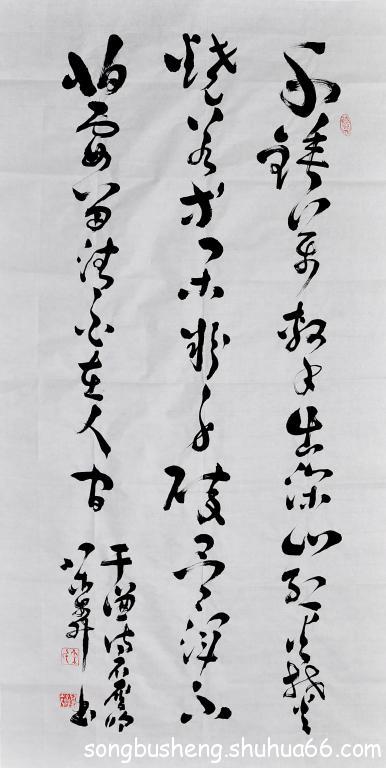 千锤万凿出深山烈火焚
烧若等闲粉身碎骨浑不
怕要留清白在人间
于谦诗石灰吟
书
songbusheng.shuhua66.com